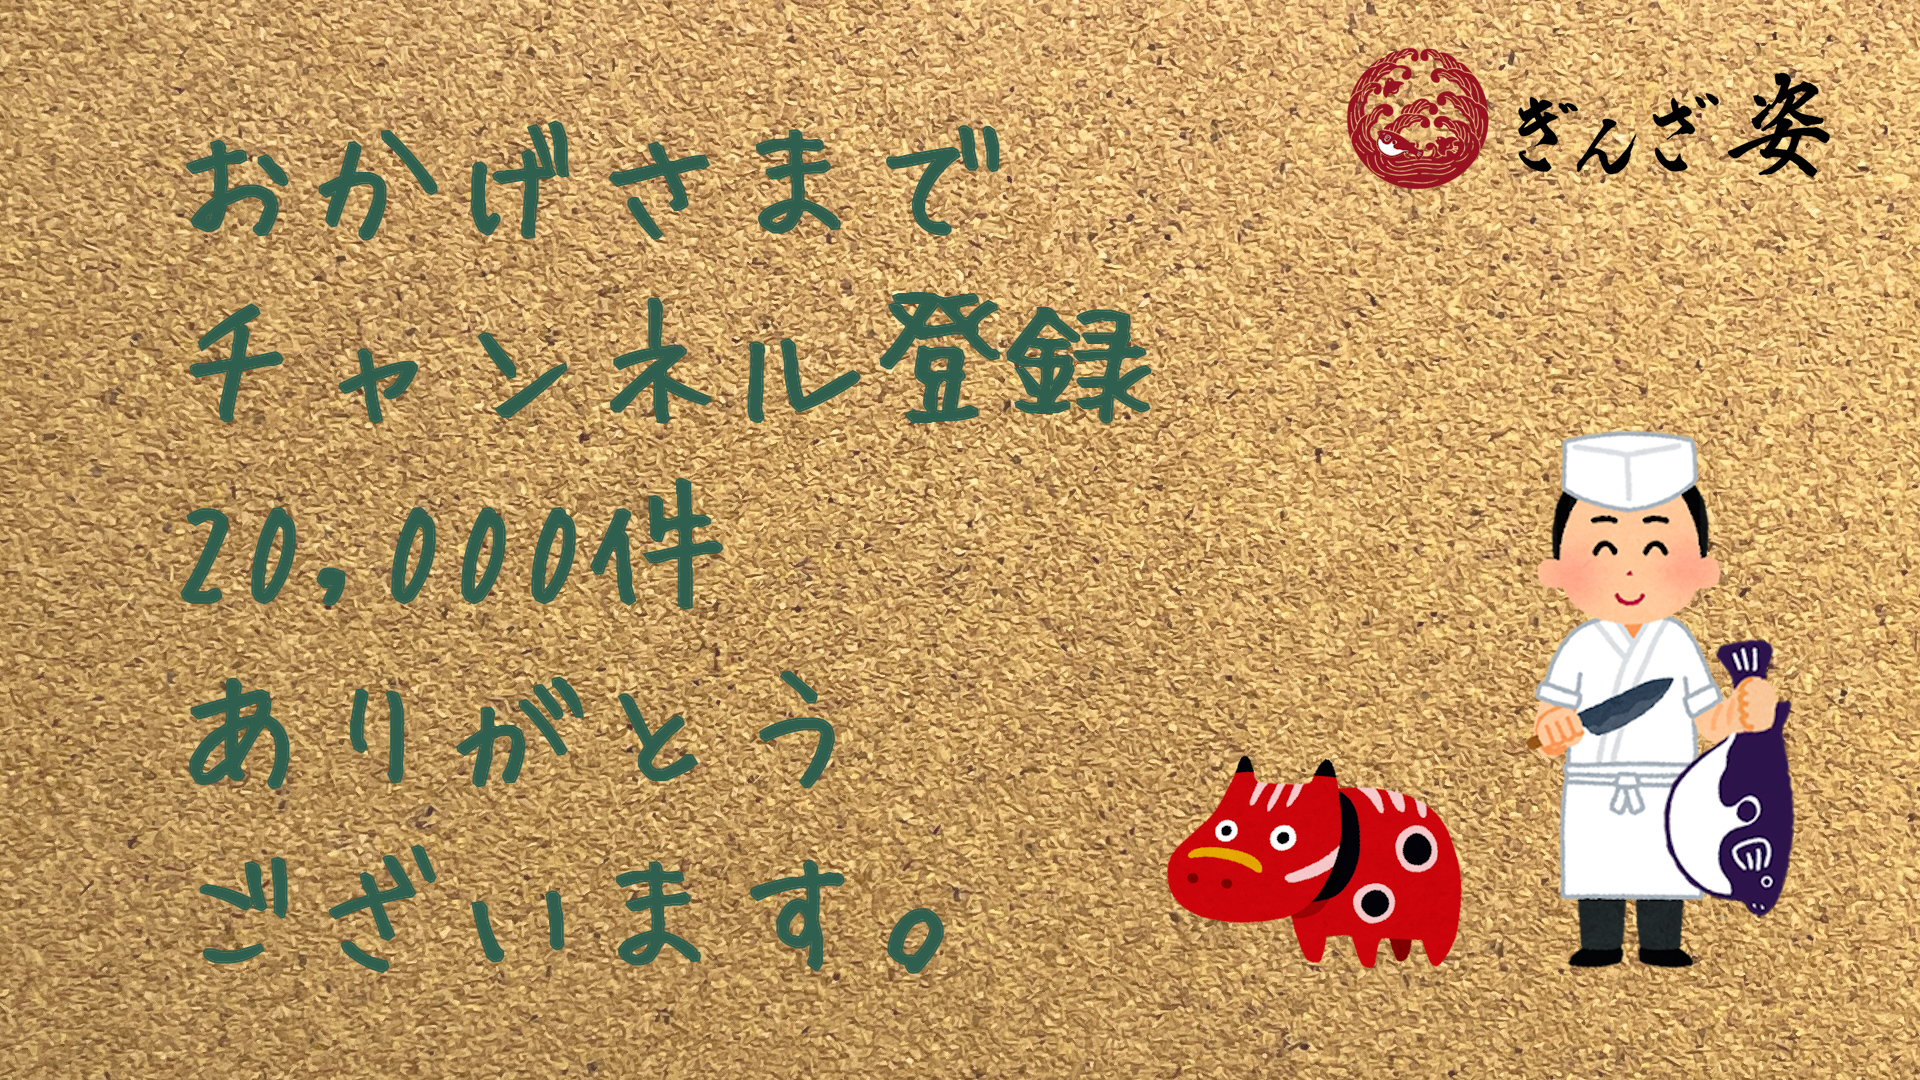 ぎんざ 姿
おかげさまで
チャンネル登録
20,000件
ありがとう
ございます。